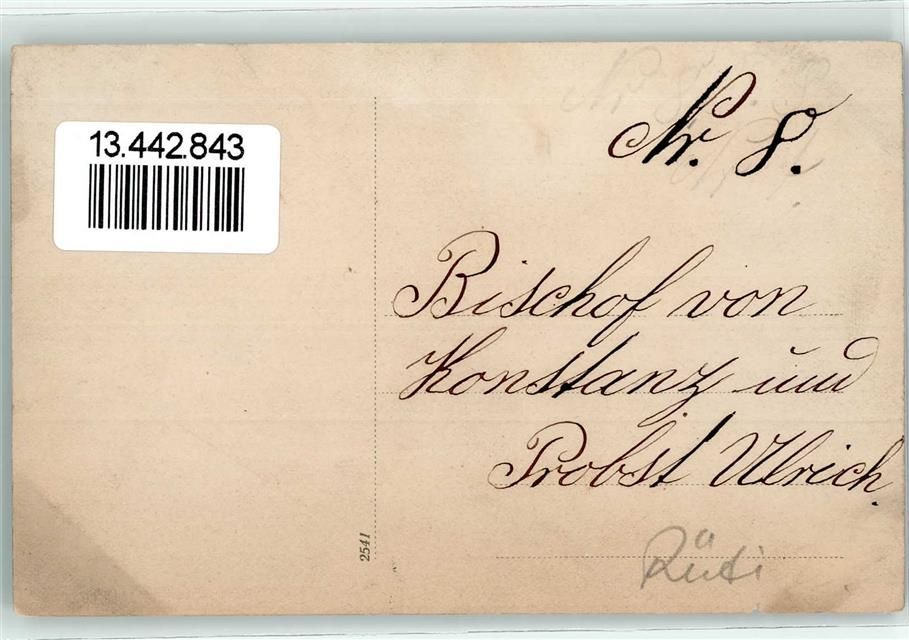 13.442.843
Nr. 8.
Bischof von
Konstanz und
Probst Ulrich.
Rüti
2541